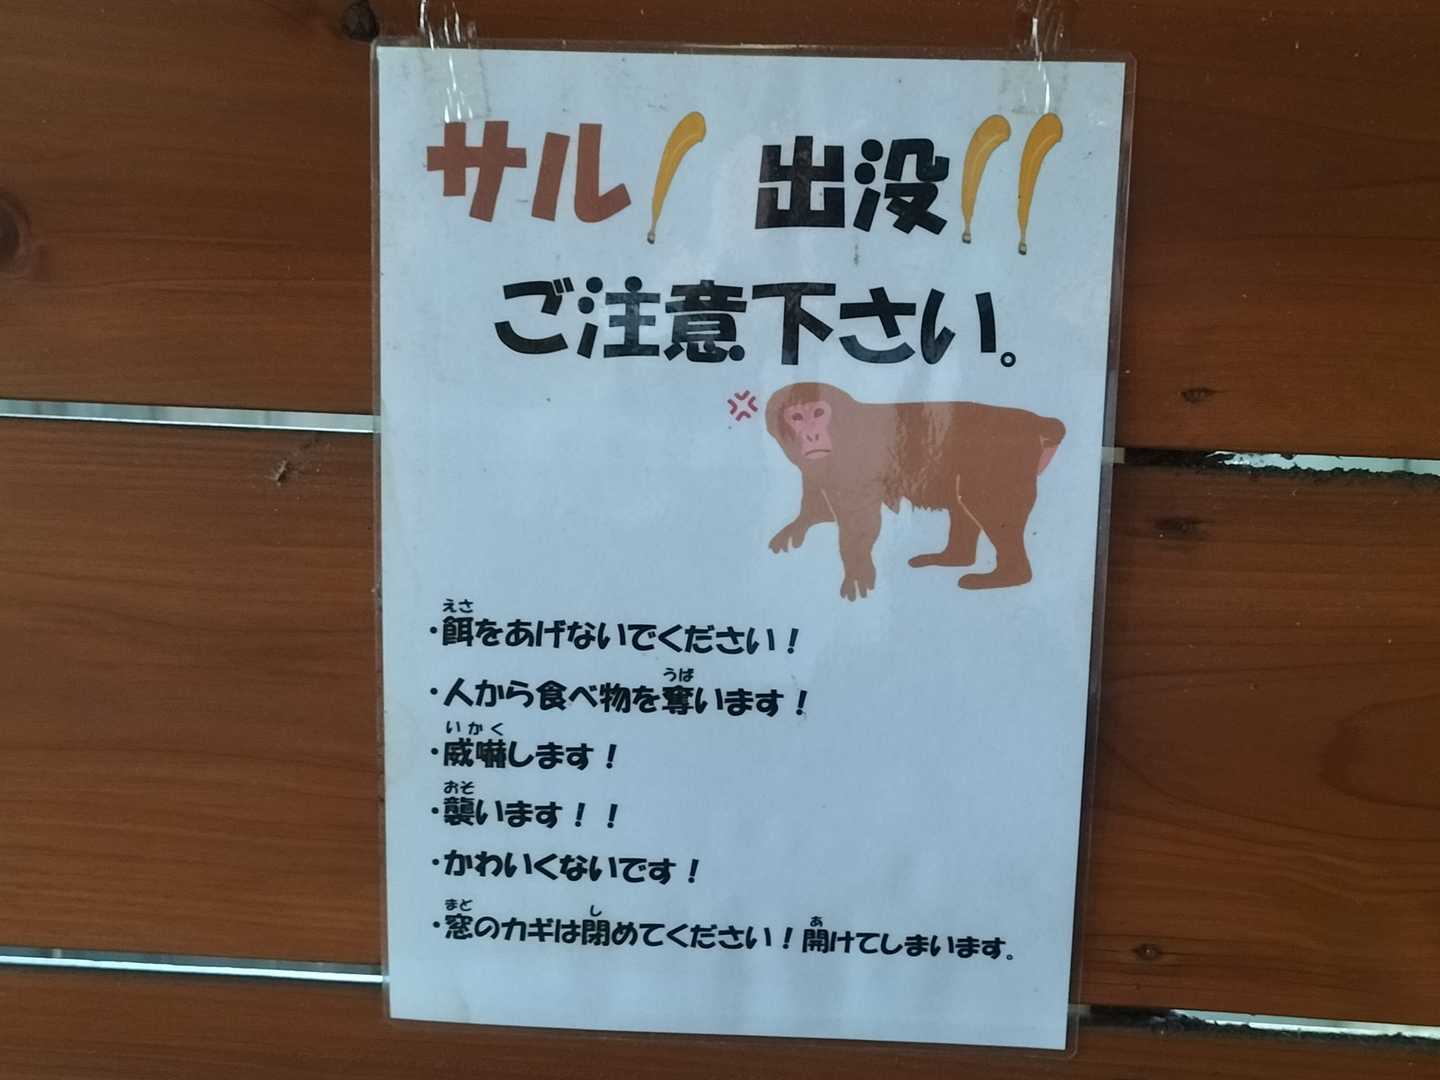 サル! 出没!!
ご注意下さい。
えさ
・餌をあげないでください！
うば
・人から食べ物を奪います！
いかく
・威嚇します！
おそ
・襲います！！
・かわいくないです！
まど し あ
・窓のカギは閉めてください！開けてしまいます。